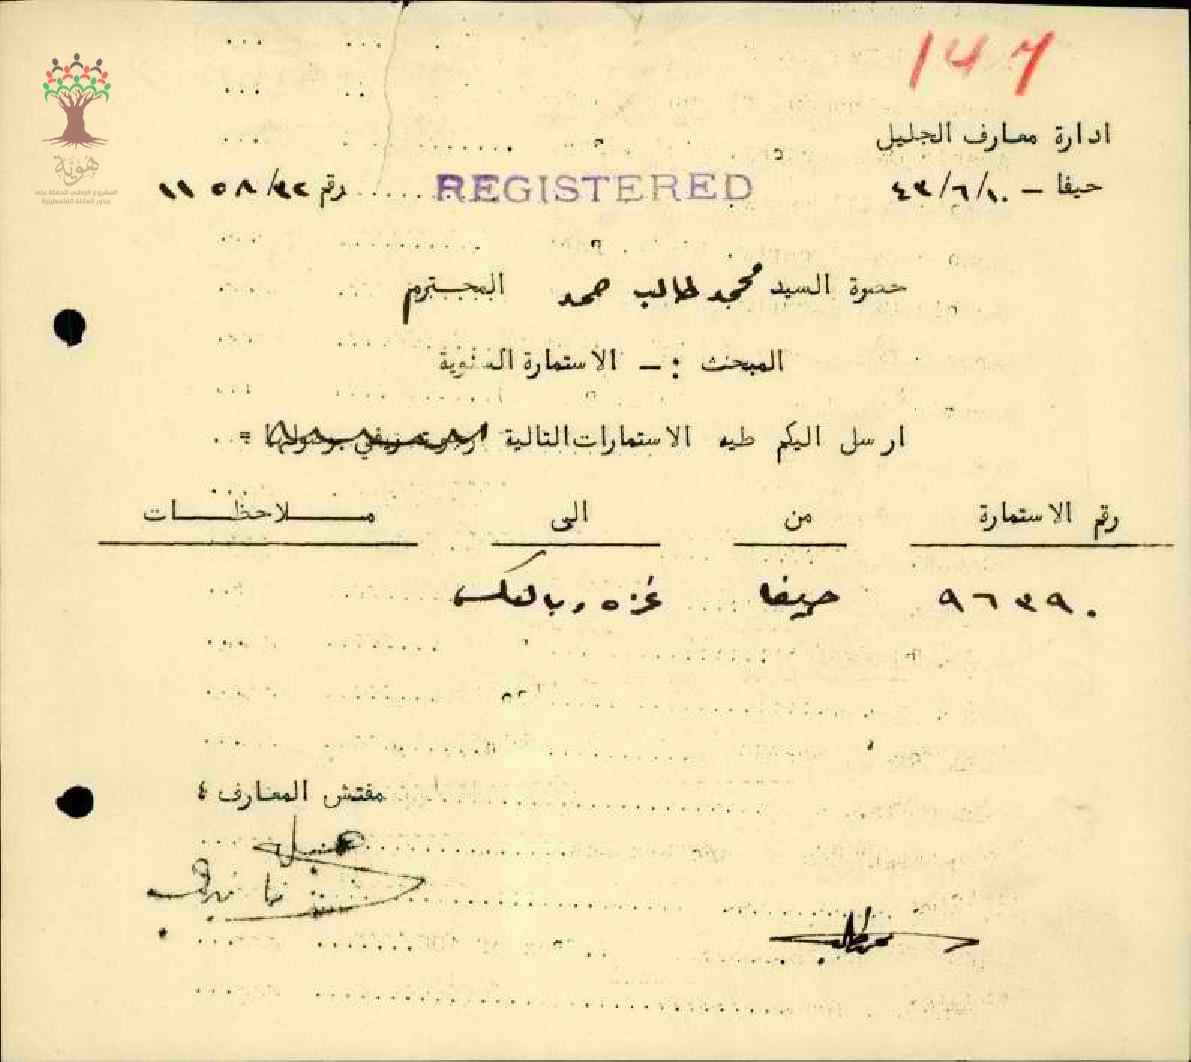 147
هُويَّة
المشروع الوطني للحفاظ على
جذور العائلة الفلسطينية
ادارة معارف الجليل
حيفا - ٤٣/٦/١٠ REGISTERED رقم ١١٥٨/٤٢
حضرة السيد محمد طالب حمد المحترم
المبحث :- الاستمارة السنوية
ارسل اليكم طيه الاستمارات التالية
رقم الاستمارة من الى ملاحظات
٩٦٣٩٠ حيفا غزه وبالعكس
مفتش المعارف ٤